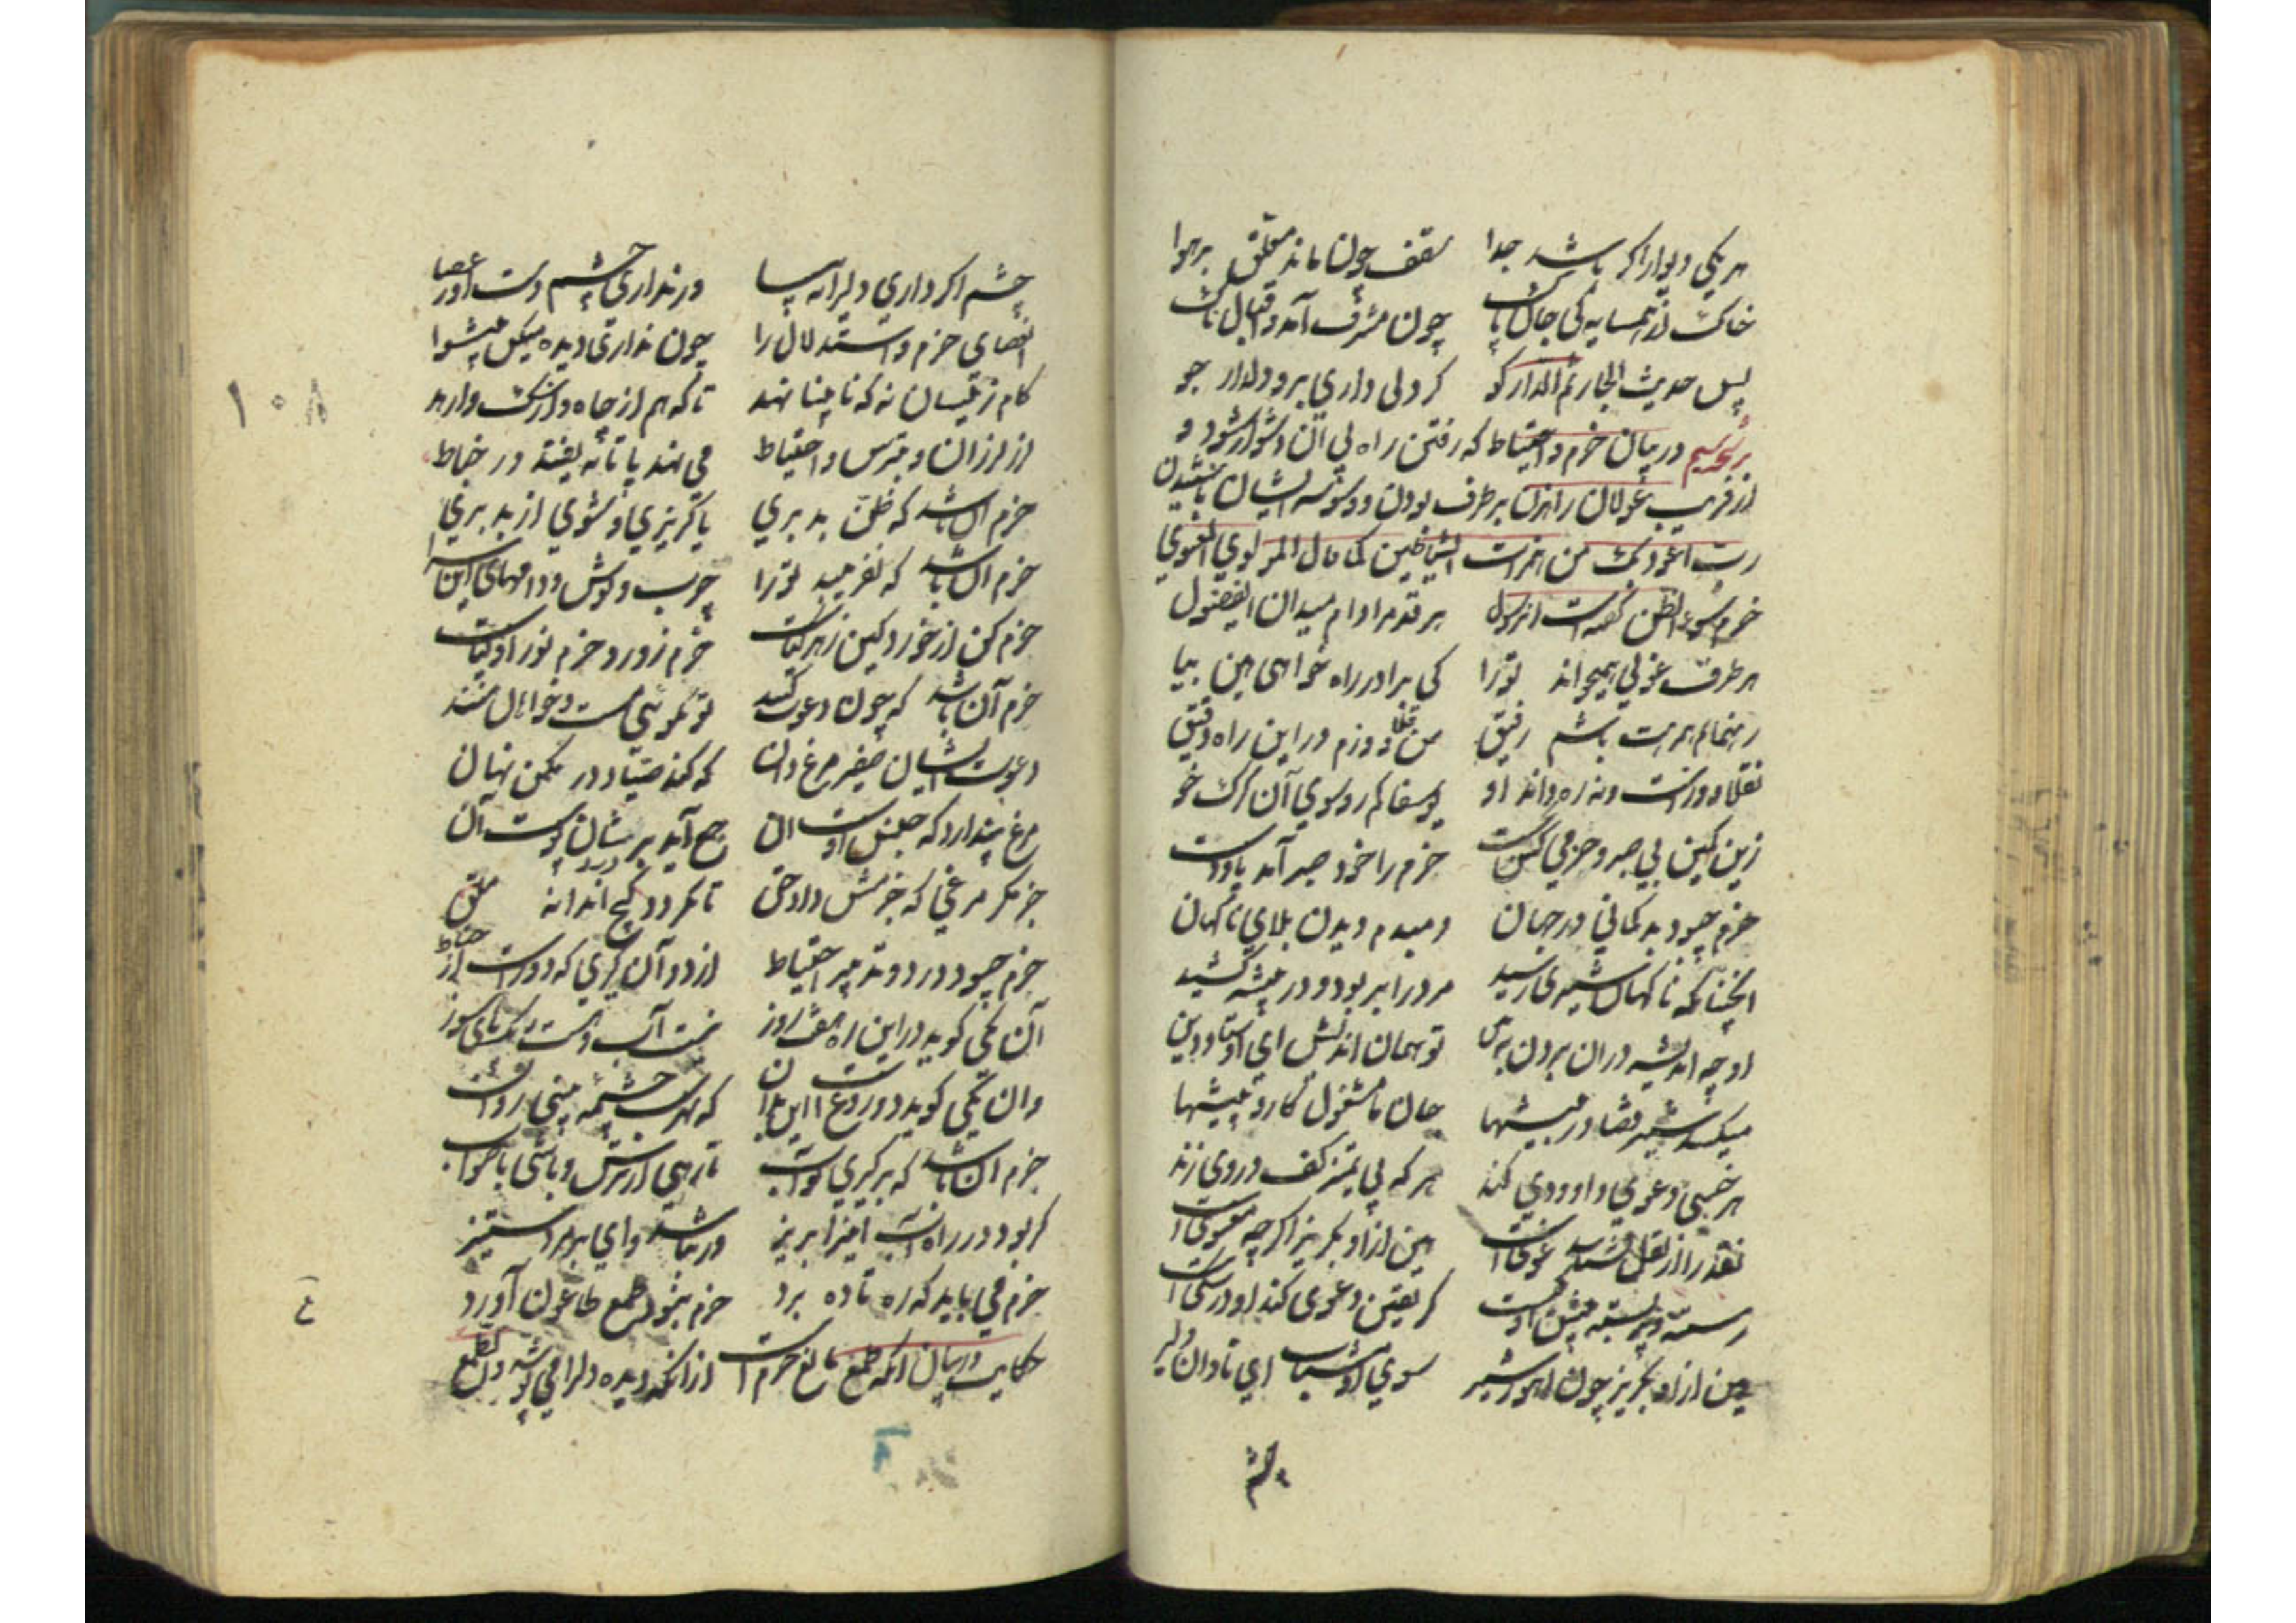 هر یکی دیوار اگر باشد جدا سقف چون ماند معلق بر هوا
خاک از همسایه کی جان پاک چون مشرف آمد و اقبال ناک
پس حدیث الجار ثم الدار کو گر دلی داری برو دلدار جو
در بیان حزم و احتیاط که رفتن راه بی آن دشوار شود و
از فریب غولان راهزن برطرف بودن و وسوسه ایشان ناشنیدن
رب اعوذ بک من همزات الشیاطین کما قال المولوی المعنوی
حزم سوء الظن گفتست آن رسول هر قدم را دام میدان ای فضول
هر طرف غولی همیخواند ترا کی برادر راه خواهی هین بیا
رهنمایم همرهت باشم رفیق من قلاوزم در این راه دقیق
نه قلاوزست و نه ره داند او یوسفا کم رو سوی آن گرگ خو
زین کمین بی صبر و حزمی کس نجست حزم را خود صبر آمد پا و دست
حزم چبود بدگمانی در جهان دمبدم دیدن بلای ناگهان
آنچنانکه ناگهان شیری رسید مرد را بربود و در بیشه کشید
او چه اندیشد در آن بردن ببین تو همان اندیش ای استاد دین
میکشد شیر قضا در بیشها جان ما مشغول کار و پیشها
هر خسی دعوی داوودی کند هر که بی تمیز کف در وی زند
هین ازو بگریز اگرچه معنویست
هین ازو بگریز چون آهو ز شیر سوی او مشتاب ای نادان دلیر
چشم
چشم اگر داری دلیرانه بیا ور نداری چشم دست آور عصا
آن عصای حزم و استدلال را چون نداری دیده میکن پیشوا
گام زینسان نه که نابینا نهد تا که هم از چاه و از سگ وارهد
لرزان و بترس و احتیاط می نهد پا تا نیفتد در خباط
حزم آن باشد که ظن بد بری تا گریزی و شوی از بد بری
حزم آن باشد که نفریبد ترا چرب و نوش و دامهای این سرا
حزم کن از خورد کین زهرین گیاست حزم زور و حزم نور اولیاست
حزم آن باشد که چون دعوت کنند تو نگویی مست و خواهان منند
دعوت ایشان صفیر مرغ دان که کند صیاد در مکمن نهان
مرغ پندارد که جنس اوست آن جمع آید بر درد شان پوست آن
جز مگر مرغی که حزمش داد حق تا نگردد گیج آن دانه ملق
حزم چبود در دو تدبیر احتیاط از دو آن گیری که دورست از خباط
آن یکی گوید در این ره هفت روز نیست آب و هست ریگ پای سوز
وان یکی گوید دروغ است این بدان که بهر شب چشمه بینی روان
حزم آن باشد که برگیری تو آب تا رهی از ترس و باشی با صواب
گر بود در راه آب این را بریز ور نباشد وای بر مرد ستیز
حزم می باید که ره تا ده برد
حکایت در بیان آنکه طمع مانع حزم است
۱۰۸